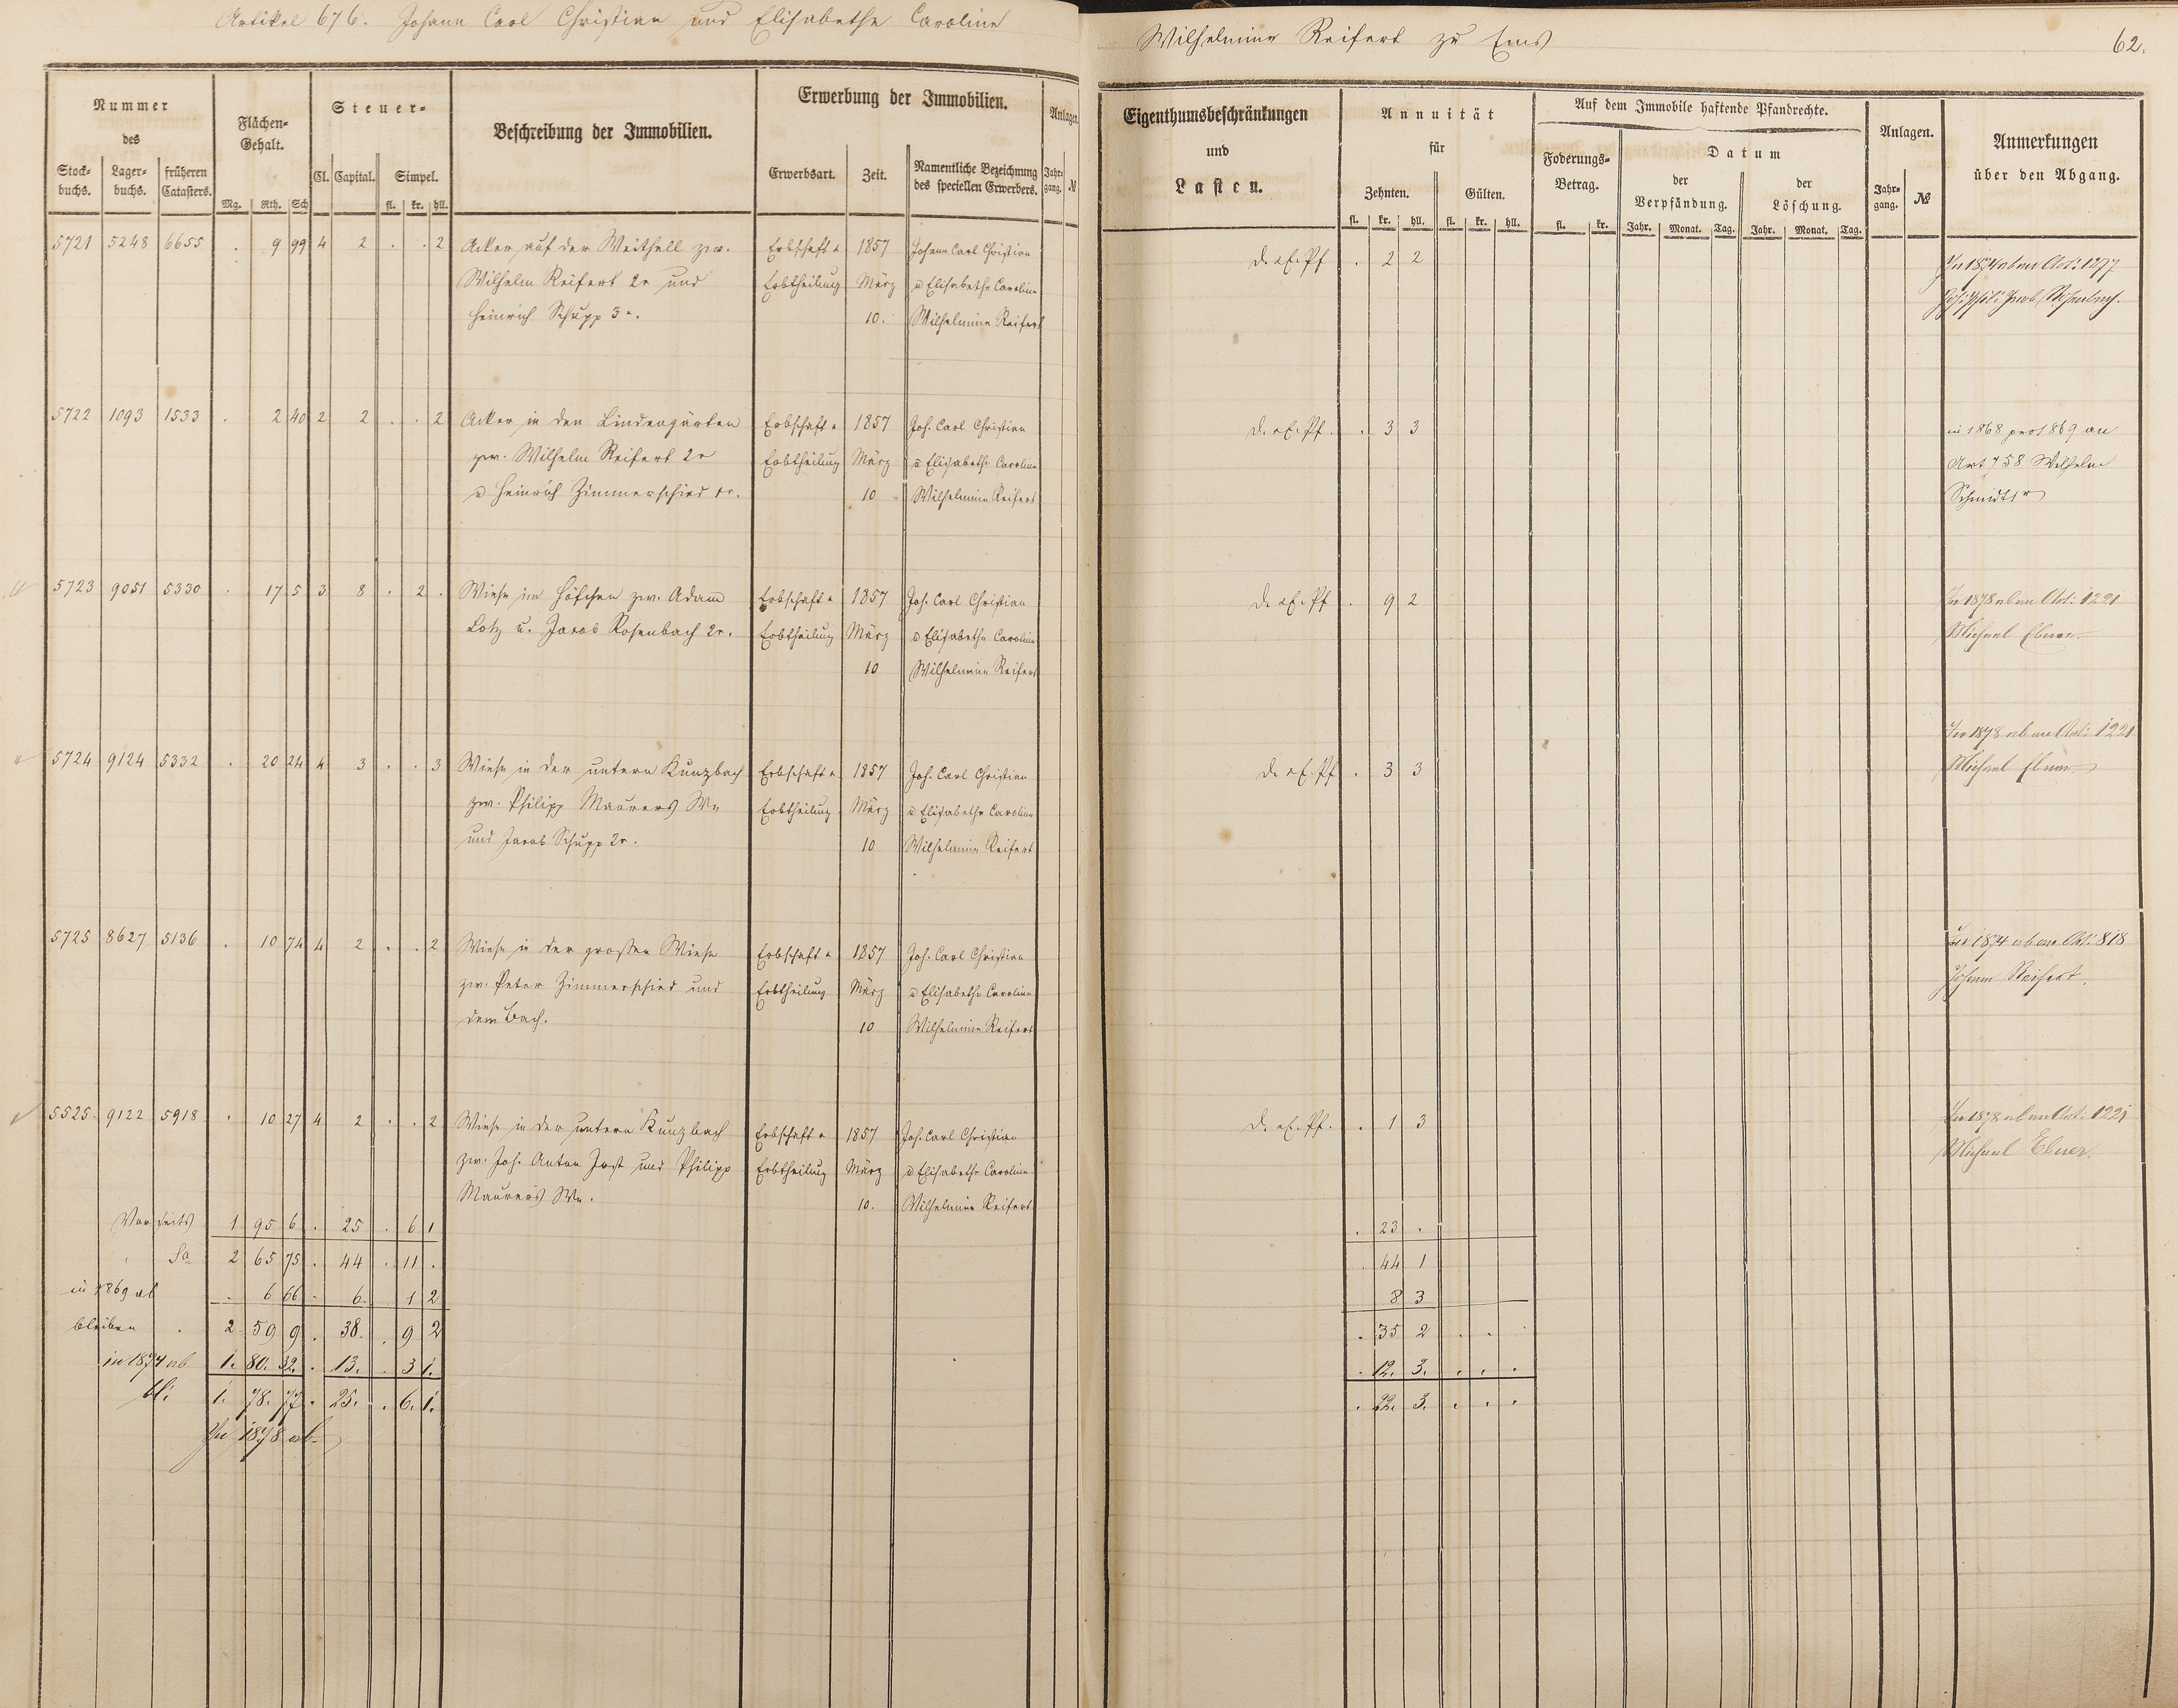 Artikel 676. Johann Carl Christian und Elisabethe Caroline
Wilhelmine Reifert zu Ems
62.
Nummer
des
Stock-
buchs.
Lager-
buchs.
früheren
Catasters.
Flächen-
Gehalt.
Mg. Rth. Sch
Steuer-
Cl. Capital. Simpel.
fl. kr. hll.
Beschreibung der Immobilien.
Erwerbung der Immobilien.
Erwerbsart. Zeit.
Namentliche Bezeichnung
des speciellen Erwerbers.
Anlagen.
Jahr-
gang. №
Eigenthumsbeschränkungen
und
Lasten.
Annuität
für
Zehnten. Gülten.
fl. kr. hll. fl. kr. hll.
Auf dem Immobile haftende Pfandrechte.
Foderungs-
Betrag.
fl. kr.
Datum
der
Verpfändung.
der
Löschung.
Jahr. Monat. Tag. Jahr. Monat. Tag.
Anlagen.
Jahr-
gang. №
Anmerkungen
über den Abgang.
5721 5248 6655 . 9 99 4 2 . . 2 Acker auf der Weithell zw. Erbschaft u 1857 Johann Carl Christian d. z. E. Pf . 2 2
Wilhelm Reifert 2r und Erbtheilung März u Elisabethe Caroline
Heinrich Schupp 3r. 10. Wilhelmine Reifert
In 1874 ab an Art: 1277
5722 1093 1533 . 2 40 2 2 . . 2 Acker in den Lindengärten Erbschaft u 1857 Joh. Carl Christian d. z. E. Pf. . 3 3 in 1868 pro 1869 an
zw. Wilhelm Reifert 2r Erbtheilung März u Elisabethe Caroline Art 758 Wilhelm
u Heinrich Zimmerschied 1r. 10 Wilhelmine Reifert Schmidt 1r
5723 9051 5330 . 17 5 3 8 . 2 . Wiese im Höfchen zw. Adam Erbschaft u 1857 Joh. Carl Christian d. z. E. Pf . 9 2 In 1878 ab an Art: 1221
Lotz u. Jacob Rosenbach 2r. Erbtheilung März u Elisabethe Caroline Michael Ebner.
10 Wilhelmine Reifert
5724 9124 5332 . 20 24 4 3 . . 3 Wiese in der untern Kunzbach Erbschaft u 1857 Joh. Carl Christian d. z. E. Pf . 3 3 In 1878 ab an Art: 1221
zw. Philipp Maurers We Erbtheilung März u Elisabethe Caroline Michael Ebner
und Jacob Schupp 2r. 10 Wilhelmine Reifert
5725 8627 5136 . 10 74 4 2 . . 2 Wiese in der großen Wiese Erbschaft u 1857 Joh. Carl Christian In 1874 ab an Art: 818
zw. Peter Zimmerschied und Erbtheilung März u Elisabethe Caroline Johann Reifert.
dem Bach. 10 Wilhelmine Reifert
5525. 9122 5918 . 10 27 4 2 . . 2 Wiese in der untern Kunzbach Erbschaft u 1857 Joh. Carl Christian d. z. E. Pf. . 1 3 In 1878 ab an Art: 1221
zw. Joh. Anton Jost und Philipp Erbtheilung März u Elisabethe Caroline Michael Ebner.
Maurers We. 10. Wilhelmine Reifert
Vorseits 1 95 6 . 25 . 6 1 . 23 .
Sa 2 65 75 . 44 . 11 . . 44 1
in 1869 ab . 6 66 . 6. 1 2 8 3
bleiben . 2 59 9 . 38. . 9 2 . 35 2 . . .
in 1874 ab 1. 80. 32. . 13. . 3 1. . 12. 3. . . .
bl: 1. 78. 77. . 25. . 6. 1. . 22. 3. . . .
In 1878 ab